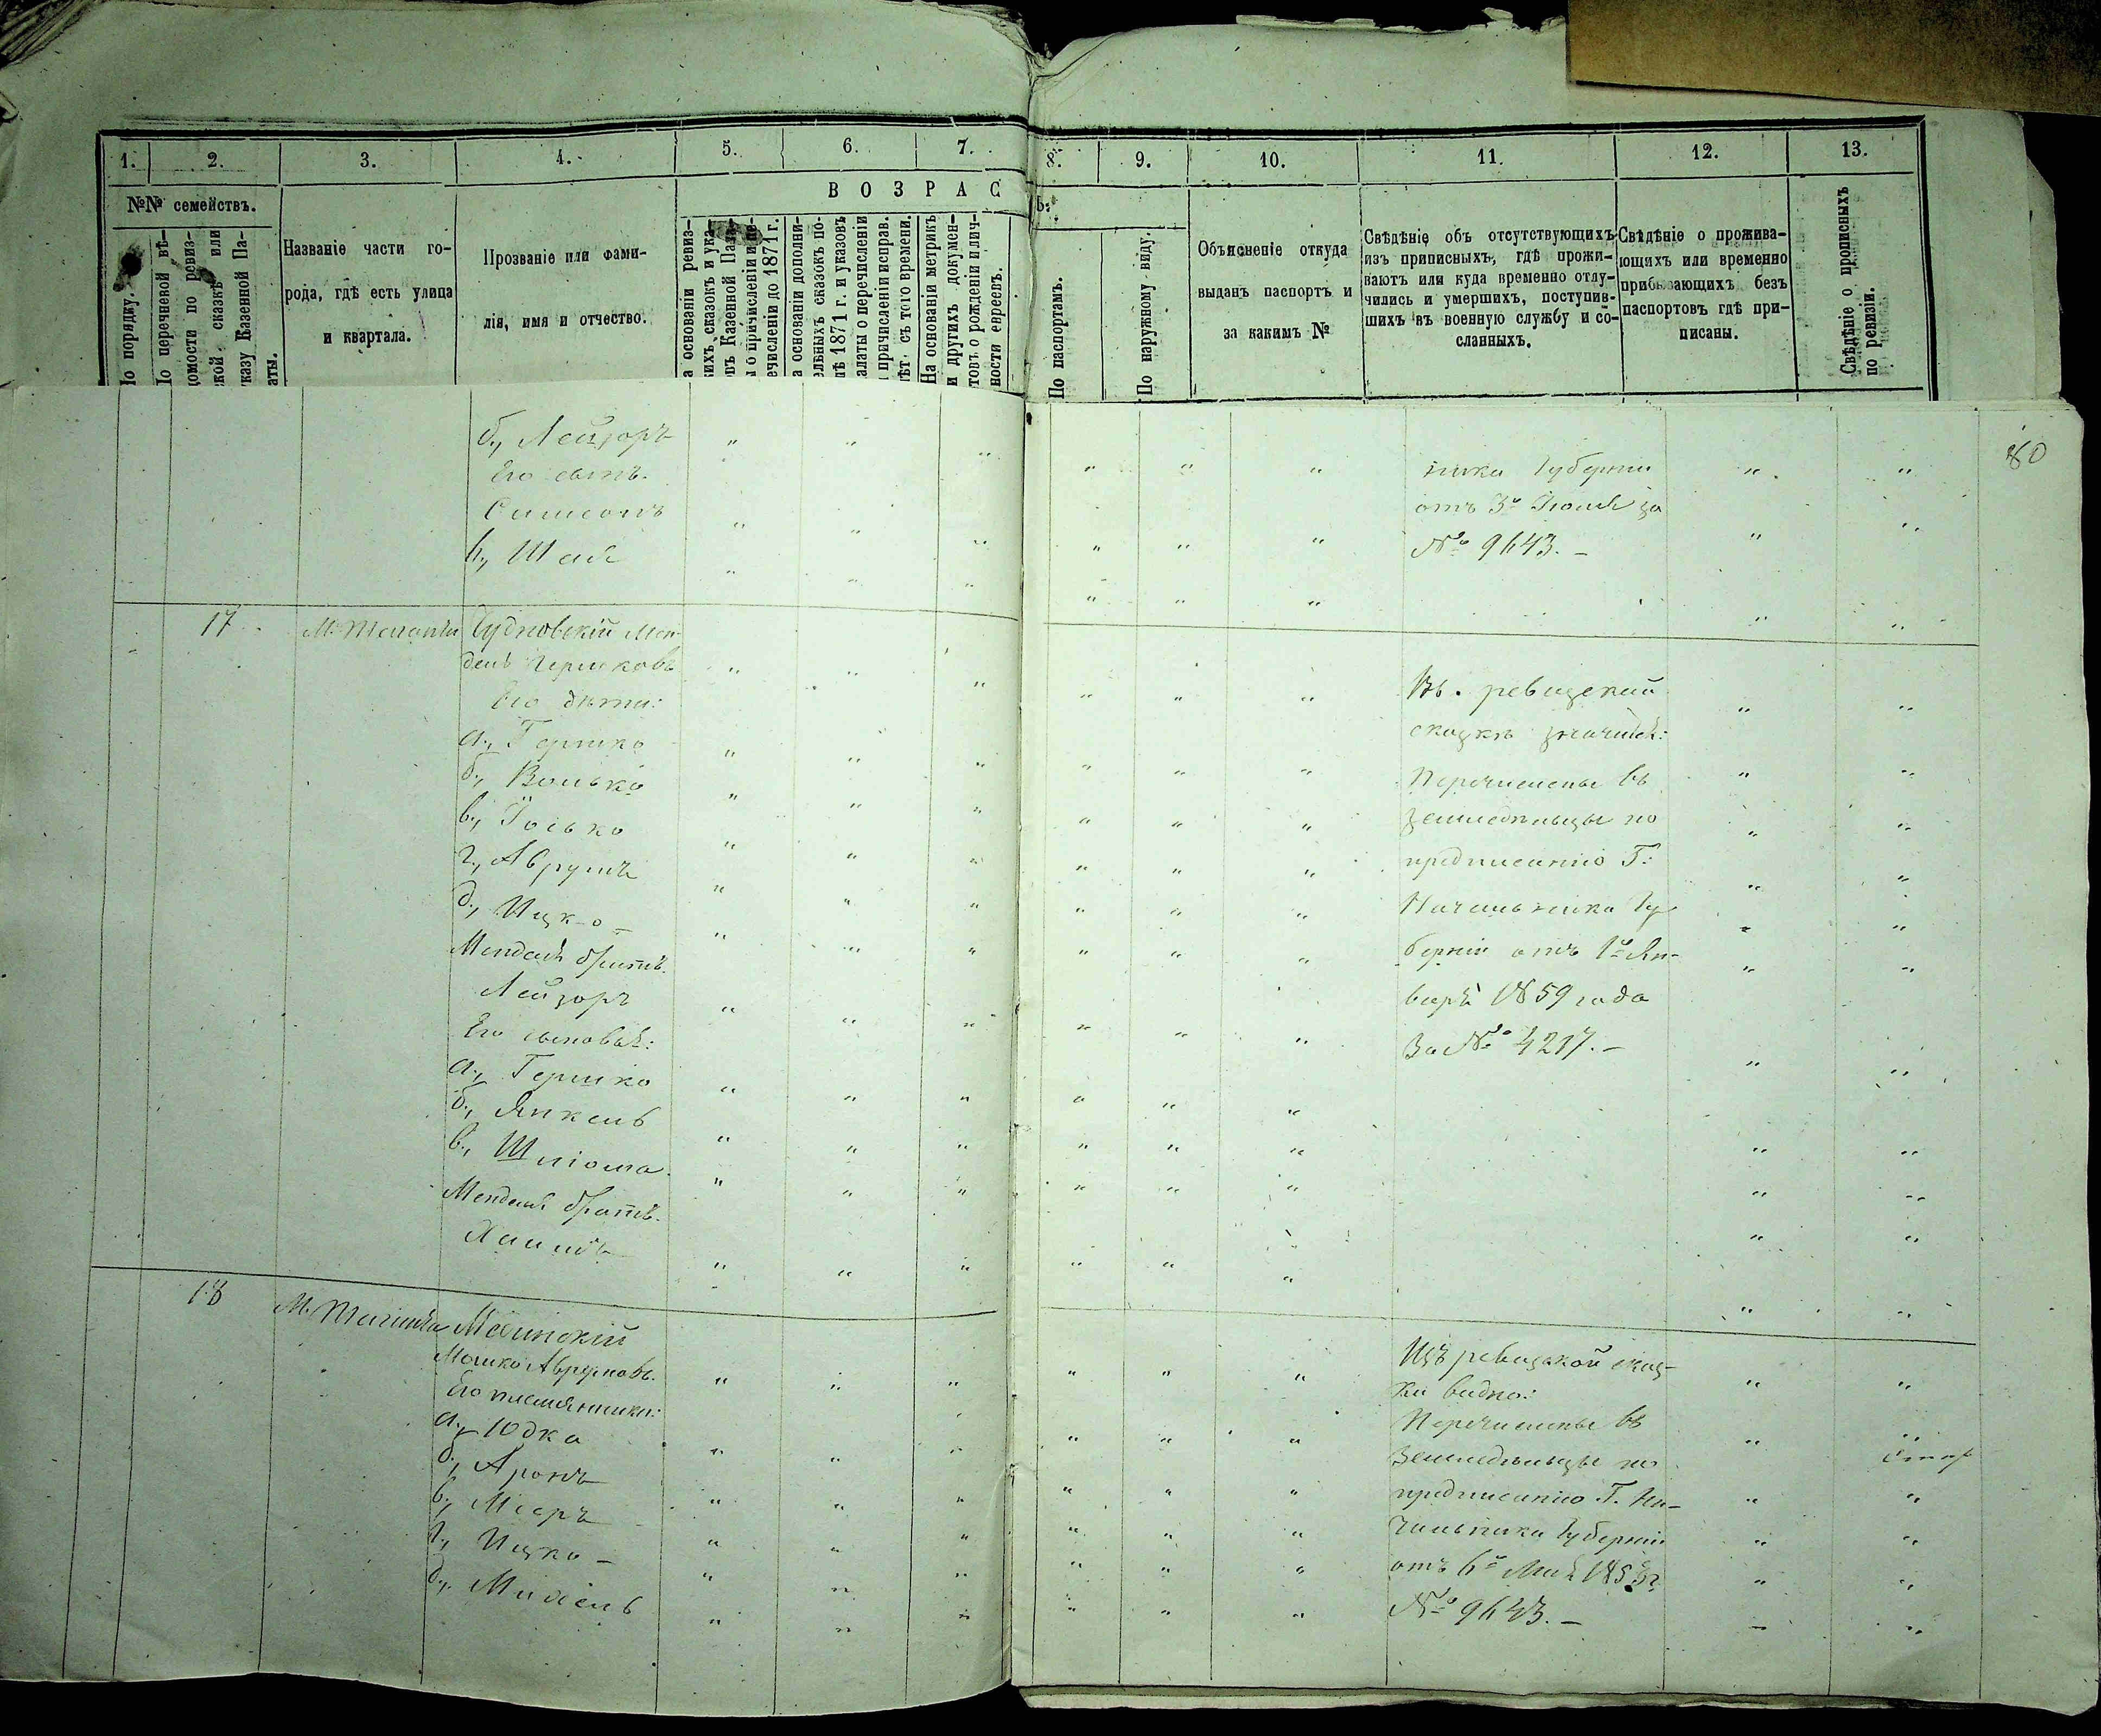 1. 2. 3. 4. 5. 6. 7. 8. 9. 10. 11. 12. 13.
№№ семействъ.
По порядку.
По перечневой вѣ-
домости по ревиз-
ской сказкѣ или
указу Казенной Па-
латы.
Названіе части го-
рода, гдѣ есть улица
и квартала.
Прозваніе или фами-
лія, имя и отчество.
ВОЗРАСТЬ:
На основаніи ревиз-
скихъ сказокъ и ука-
зовъ Казенной Пала-
ты о причисленіи и пе-
речисленіи до 1871 г.
На основаніи дополни-
тельныхъ сказокъ по-
слѣ 1871 г. и указовъ
Палаты о перечисленіи
и причисленіи исправ.
лѣт. съ того времени.
На основаніи метрикъ
и другихъ докумен-
товъ о рожденіи и лич-
ности евреевъ.
По паспортамъ.
По наружному виду.
Объясненіе откуда
выданъ паспортъ и
за какимъ №
Свѣдѣніе объ отсутствующихъ
изъ приписныхъ, гдѣ прожи-
ваютъ или куда временно отлу-
чились и умершихъ, поступив-
шихъ въ военную службу и со-
сланныхъ.
Свѣдѣніе о прожива-
ющихъ или временно
прибывающихъ безъ
паспортовъ гдѣ при-
писаны.
Свѣдѣніе о прописныхъ
по ревизіи.
80
б., Лейзоръ
Его сынъ.
Симсонъ
в., Шая
ника Губерніи
отъ 3го Іюля за
№ 9643.–
17
Чудновскій Мен-
дель Гершковъ
Его дѣти:
а., Гершко
б., Волько
в., Іосько
г., Аврумъ
д., Ицко –
Менделя братъ.
Лейзоръ
Его сыновья:
а., Гершко
б., Янкель
в., Шліома
Менделя братъ.
Хаимъ
Въ ревизской
сказкѣ значится:
Перечислены въ
земледѣльцы по
предписанію Г:
Начальника Гу-
берніи отъ 1го Ян-
варя 1859 года
За № 4217.–
18
Мошко Аврумовъ.
Его племянники:
а., Юдка
б., Аронъ
в., Мееръ
г., Ицко –
д., Михель
Изъ ревизской сказ-
ки видно:
Перечислены въ
Земледѣльцы по
предписанію Г. На-
чальника Губерніи
отъ 6го Мая
№ 9643.–